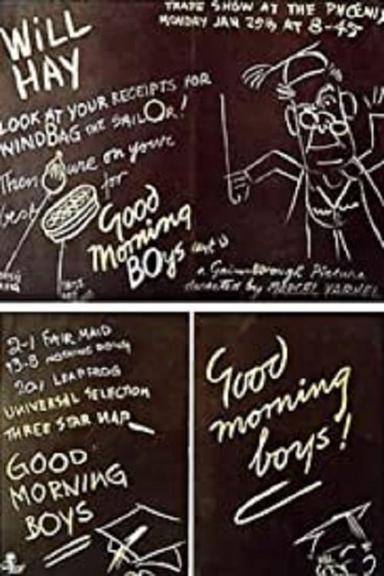 TRADE SHOW AT THE PHOENIX
MONDAY JAN 29th, AT 8-45
WILL
HAY
LOOK AT YOUR RECEIPTS FOR
WINDBAG THE SAILOR!
Then on your
best for
Good
Morning
BOYS
a Gainsborough Picture
directed by MARCEL VARNEL
2-1 FAIR MAID
13-8 NOTHING DOING
20/1 LEAPFROG
UNIVERSAL SELECTION
THREE STAR NAP
GOOD
MORNING
BOYS
Good
morning
boys!